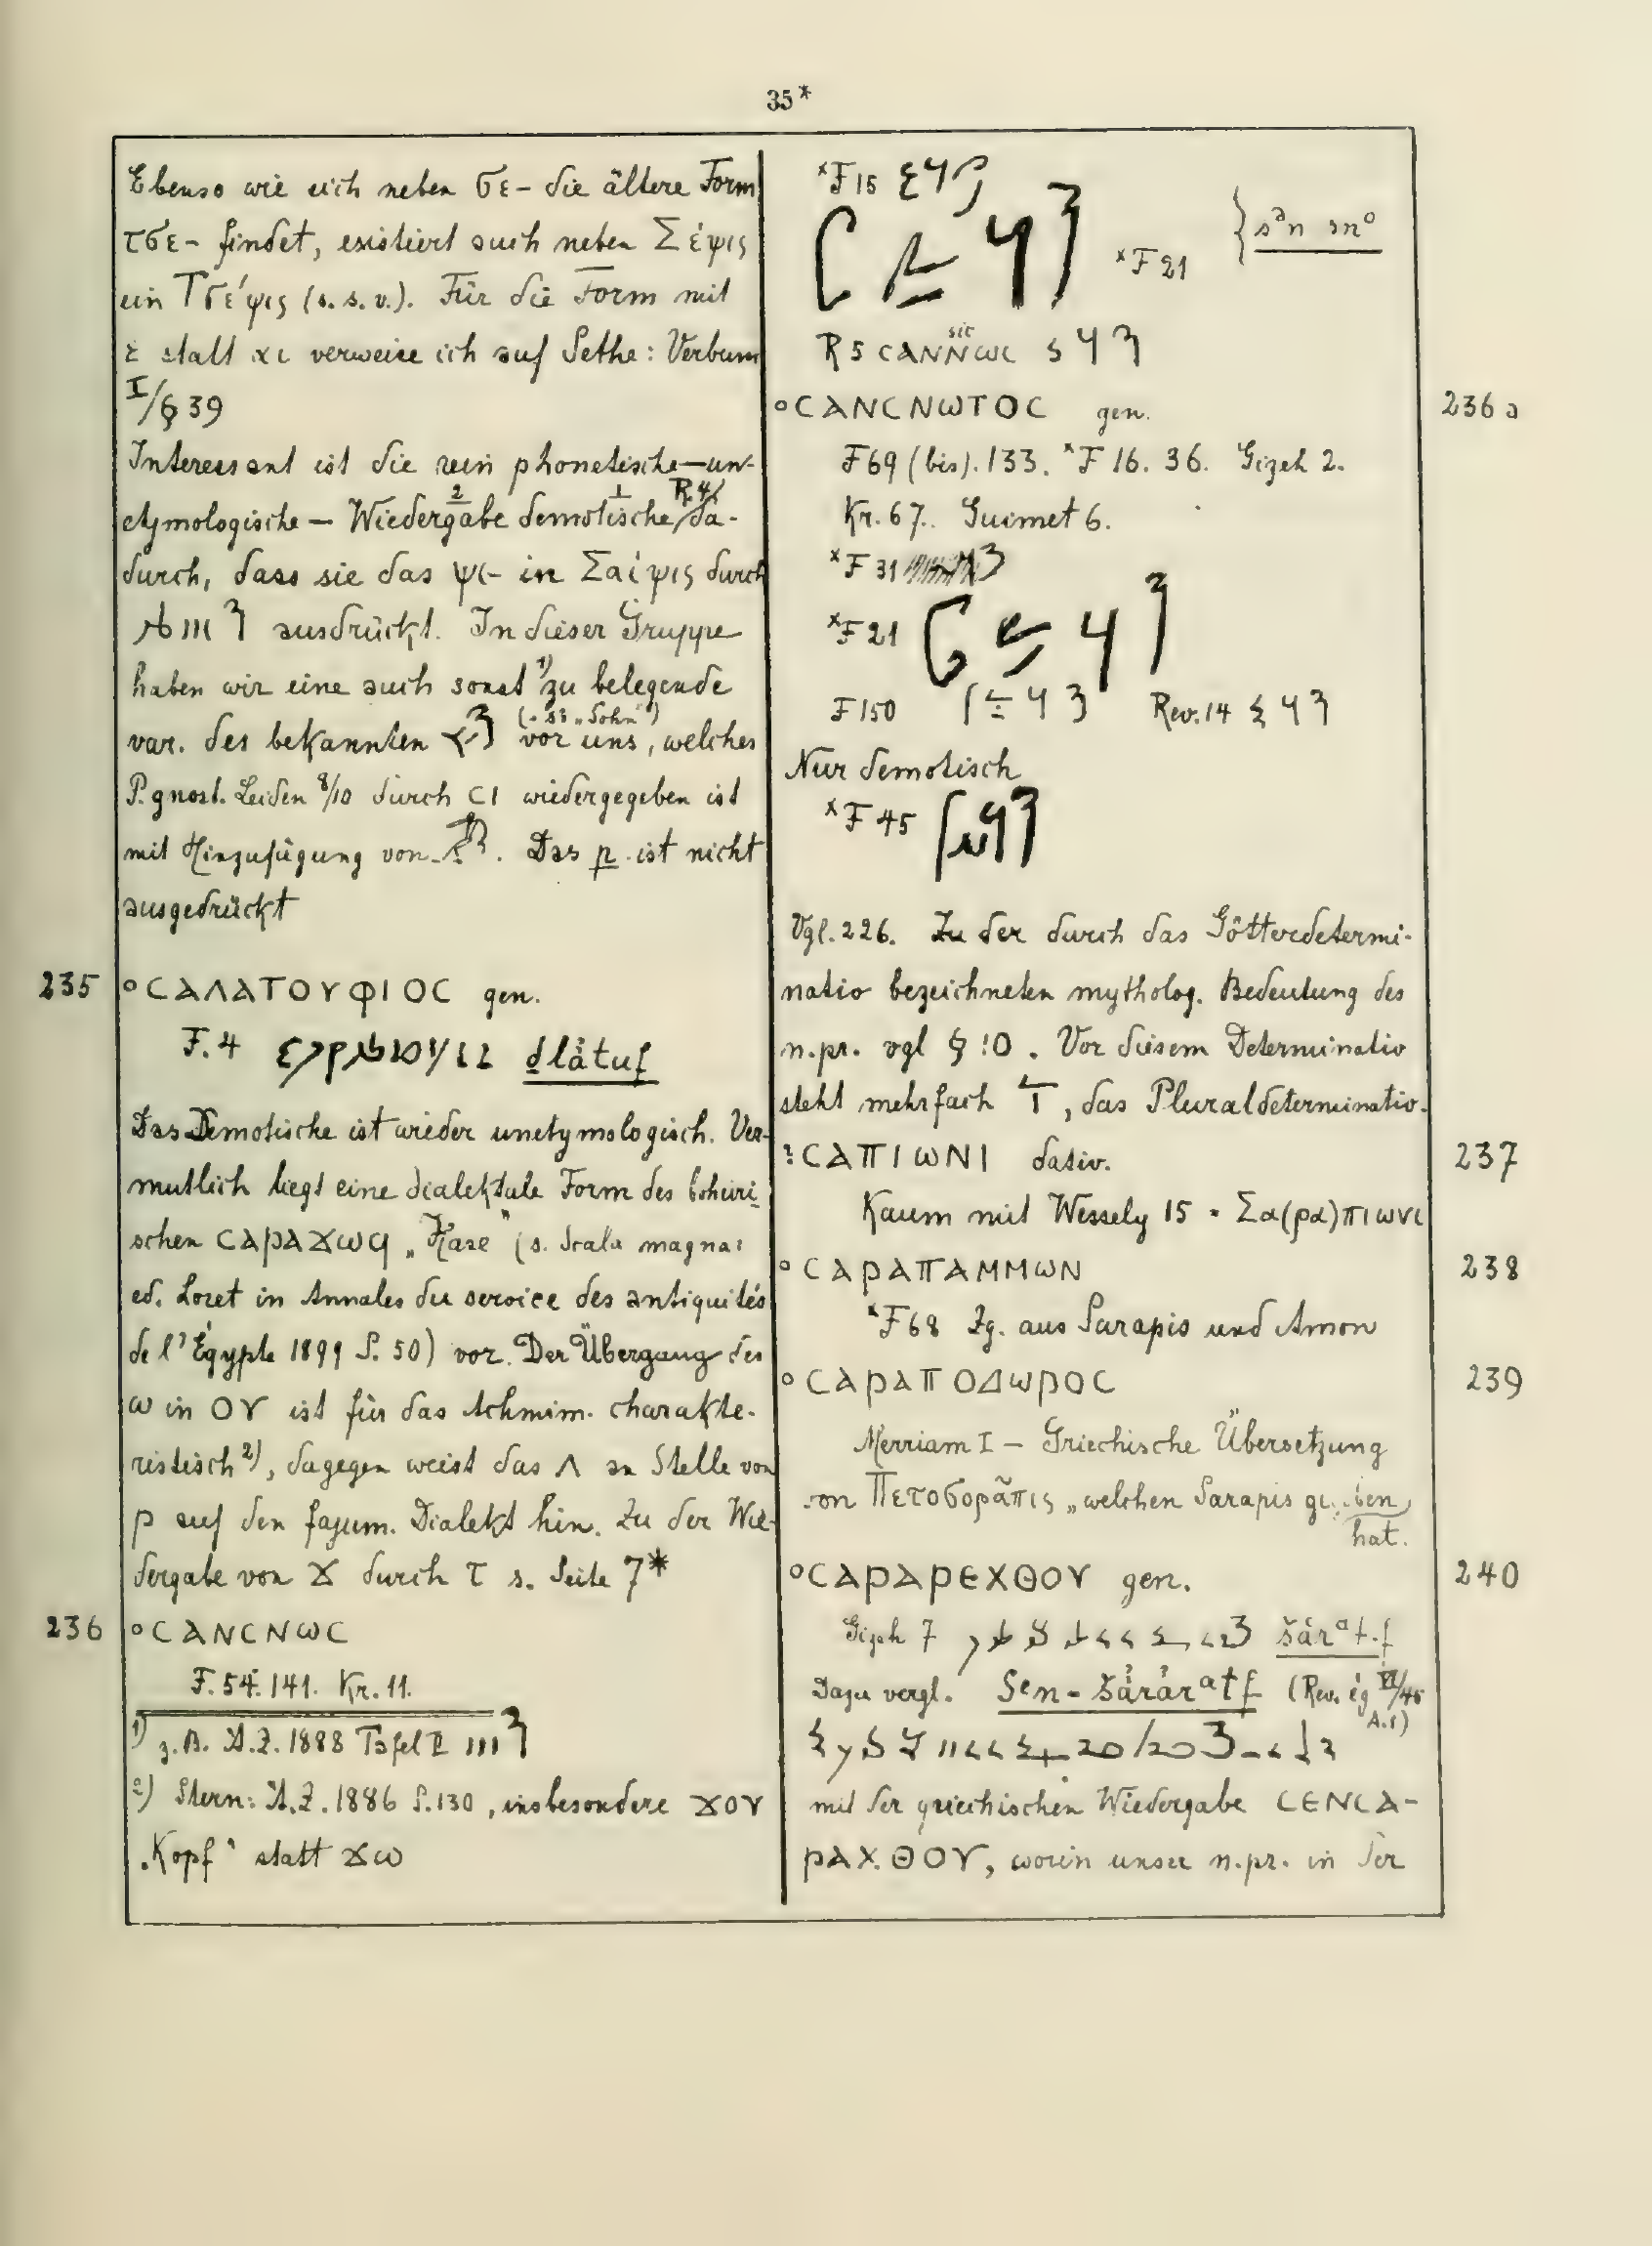 35*
Ebenso wie sich neben σε- die ältere Form
τσε- findet, existiert auch neben Σέψις
ein Τσέψις (s. s. v.). Für die Form mit
ε statt αι verweise ich auf Sethe: Verbum
I/§ 39
Interessant ist die rein phonetische—un-
etymologische — Wiedergabe demotische R. 4 da-
durch, dass sie das ψι- in Σαίψις durch
ausdrückt. In dieser Gruppe
haben wir eine auch sonst 1) zu belegende
var. des bekannten (= s3 „Sohn“) vor uns, welches
P. gnost. Leiden 8/10 durch CI wiedergegeben ist
mit Hinzufügung von. Das p ist nicht
ausgedrückt
235 °CΑΛΑΤΟΥΦΙΟC gen.
F. 4 dlåtuf
Das Demotische ist wieder unetymologisch. Ver-
mutlich liegt eine dialektale Form des bohairi-
schen CΑΡΑϪⲰϤ „Hase“ (s. Scala magna:
ed. Loret in Annales du service des antiquités
de l'Égypte 1899 S. 50) vor. Der Übergang des
ω in ΟΥ ist für das Achmim. charakte-
ristisch 2), dagegen weist das Λ an Stelle von
ρ auf den fajum. Dialekt hin. Zu der Wie-
dergabe von Ϫ durch τ s. Seite 7*
236 °CΑΝCΝωC
F. 54. 141. Kr. 11.
1) z. B. Ä.Z. 1888 Tafel II
2) Stern: Ä.Z. 1886 S. 130, insbesondere ϪΟΥ
„Kopf“ statt Ϫω
*F 15
*F 21 } s3n sn°
R 5 CΑΝΝωC sic
°CΑΝCΝωΤΟC gen. 236 a
F 69 (bis). 133. *F 16. 36. Gizeh 2.
Kr. 67. Guimet 6.
*F 31
*F 21
F 150 Rev. 14
Nur demotisch
*F 45
Vgl. 226. Zu der durch das Götterdetermi-
nativ bezeichneten mytholog. Bedeutung des
n. pr. vgl § 10. Vor diesem Determinativ
steht mehrfach, das Pluraldeterminativ.
?CΑΠΙωΝΙ dativ. 237
Kaum mit Wessely 15 = Σα(ρα)πιωνι
°CΑΡΑΠΑΜΜωΝ 238
*F 68 Zg. aus Sarapis und Amon
°CΑΡΑΠΟΔωΡΟC 239
Merriam I — Griechische Übersetzung
von Πετοσορᾶπις „welchen Sarapis gegeben
hat.
°CΑΡΑΡΕΧΘΟΥ gen. 240
Gizeh 7 šårat.f
Dazu vergl. Sen-šårårat f (Rev. ég VI/45
A. 1)
mit der griechischen Wiedergabe CΕΝCΑ-
ΡΑΧΘΟΥ, worin unser n. pr. in der